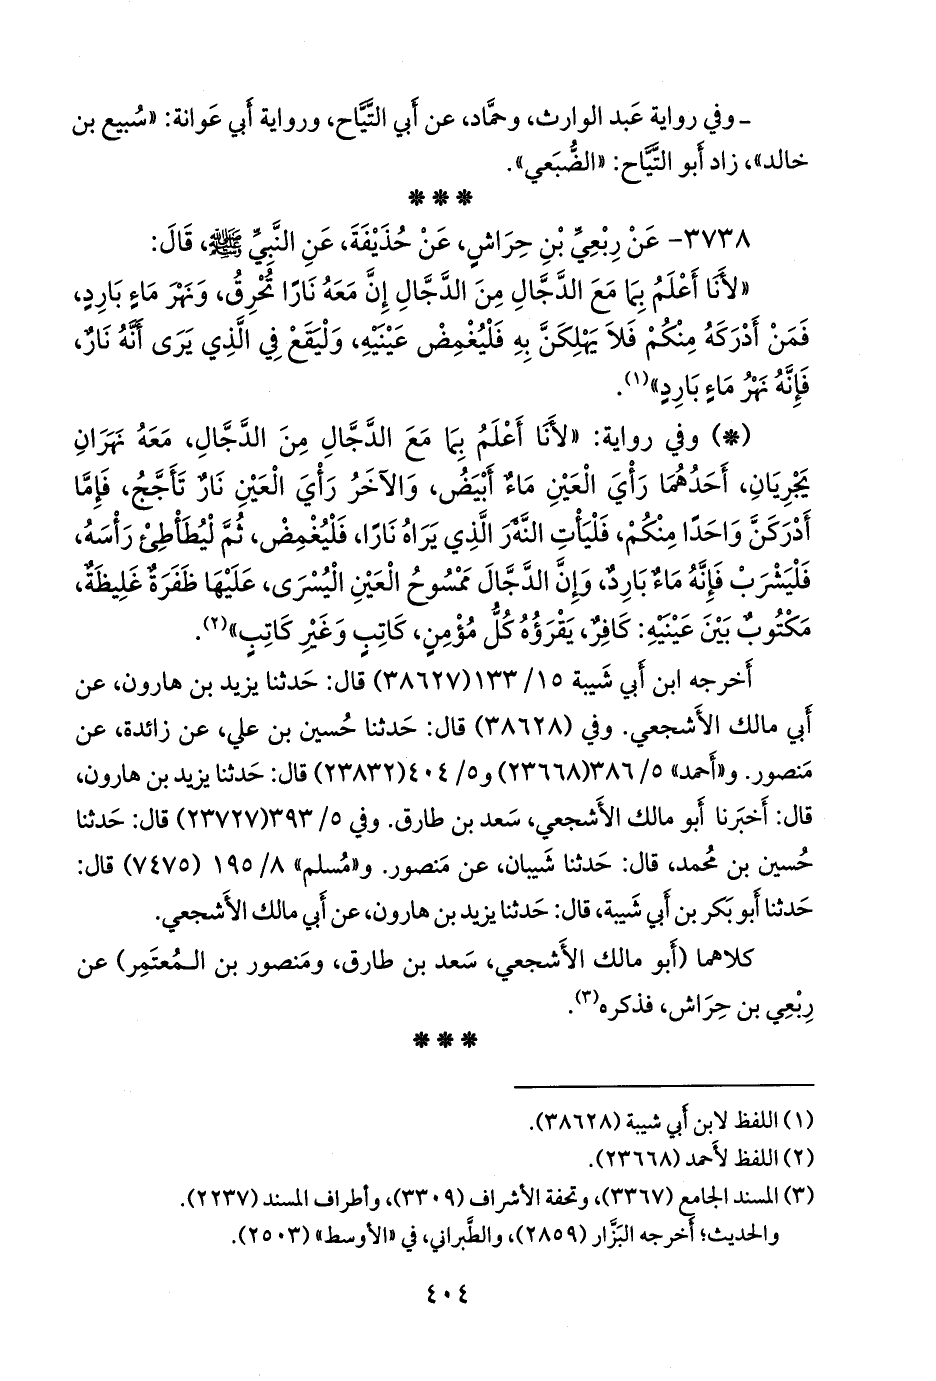 ـ وفي رواية عَبد الوارث، وحَّماد، عن أَبي التَّيَّاح، ورواية أَبي عَوانة: «سُبيع بن
خالد»، زاد أَبو التَّيَّاح: «الضُّبَعي».
* * *
٣٧٣٨- عَنْ رِبْعِيِّ بْنِ حِرَاشٍ، عَنْ حُذَيْفَةَ، عَنِ النَّبِيِّ ﷺ، قَالَ:
«لأَنَا أَعْلَمُ بِمَا مَعَ الدَّجَّالِ مِنَ الدَّجَّالِ إِنَّ مَعَهُ نَارًا تُحْرِقُ، وَنَهْرَ مَاءٍ بَارِدٍ،
فَمَنْ أَدْرَكَهُ مِنْكُمْ فَلاَ يَهْلِكَنَّ بِهِ فَلْيُغْمِضْ عَيْنَيْهِ، وَلْيَقَعْ فِي الَّذِي يَرَى أَنَّهُ نَارٌ،
فَإِنَّهُ نَهْرُ مَاءٍ بَارِدٍ»(١).
(*) وفي رواية: «لأَنَا أَعْلَمُ بِمَا مَعَ الدَّجَّالِ مِنَ الدَّجَّالِ، مَعَهُ نَهَرَانِ
يَجْرِيَانِ، أَحَدُهُمَا رَأْيَ الْعَيْنِ مَاءٌ أَبْيَضُ، وَالآخَرُ رَأْيَ الْعَيْنِ نَارٌ تَأَجَّجُ، فَإِمَّا
أَدْرَكَنَّ وَاحَدًا مِنْكُمْ، فَلْيَأْتِ النَّهْرَ الَّذِي يَرَاهُ نَارًا، فَلْيُغْمِضْ، ثُمَّ لْيُطَأْطِئْ رَأْسَهُ،
فَلْيَشْرَبْ فَإِنَّهُ مَاءٌ بَارِدٌ، وَإِنَّ الدَّجَّالَ مَمْسُوحُ الْعَيْنِ الْيُسْرَى، عَلَيْهَا ظَفَرَةٌ غَلِيظَةٌ،
مَكْتُوبٌ بَيْنَ عَيْنَيْهِ: كَافِرٌ، يَقْرَؤُهُ كُلُّ مُؤْمِنٍ، كَاتِبٍ وَغَيْرِ كَاتِبٍ»(٢).
أَخرجه ابن أَبي شَيبة ١٥/ ١٣٣(٣٨٦٢٧) قال: حَدثنا يزيد بن هارون، عن
أَبي مالك الأَشجعي. وفي (٣٨٦٢٨) قال: حَدثنا حُسين بن علي، عن زائدة، عن
مَنصور. و«أَحمد» ٥/ ٣٨٦(٢٣٦٦٨) و٥/ ٤٠٤(٢٣٨٣٢) قال: حَدثنا يزيد بن هارون،
قال: أَخبَرنا أَبو مالك الأَشجعي، سَعد بن طارق. وفي ٥/ ٣٩٣(٢٣٧٢٧) قال: حَدثنا
حُسين بن مُحمد، قال: حَدثنا شَيبان، عن مَنصور. و«مُسلم» ٨/ ١٩٥ (٧٤٧٥) قال:
حَدثنا أَبو بَكر بن أَبي شَيبة، قال: حَدثنا يزيد بن هارون، عن أَبي مالك الأَشجعي.
كلاهما (أَبو مالك الأَشجعي، سَعد بن طارق، ومَنصور بن الـمُعتَمِر) عن
رِبْعِي بن حِرَاش، فذكره(٣).
* * *
(١) اللفظ لابن أَبي شيبة (٣٨٦٢٨).
(٢) اللفظ لأَحمد (٢٣٦٦٨).
(٣) المسند الجامع (٣٣٦٧)، وتحفة الأشراف (٣٣٠٩)، وأطراف المسند (٢٢٣٧).
والحديث؛ أَخرجه البَزَّار (٢٨٥٩)، والطَّبراني، في «الأوسط» (٢٥٠٣).
٤٠٤